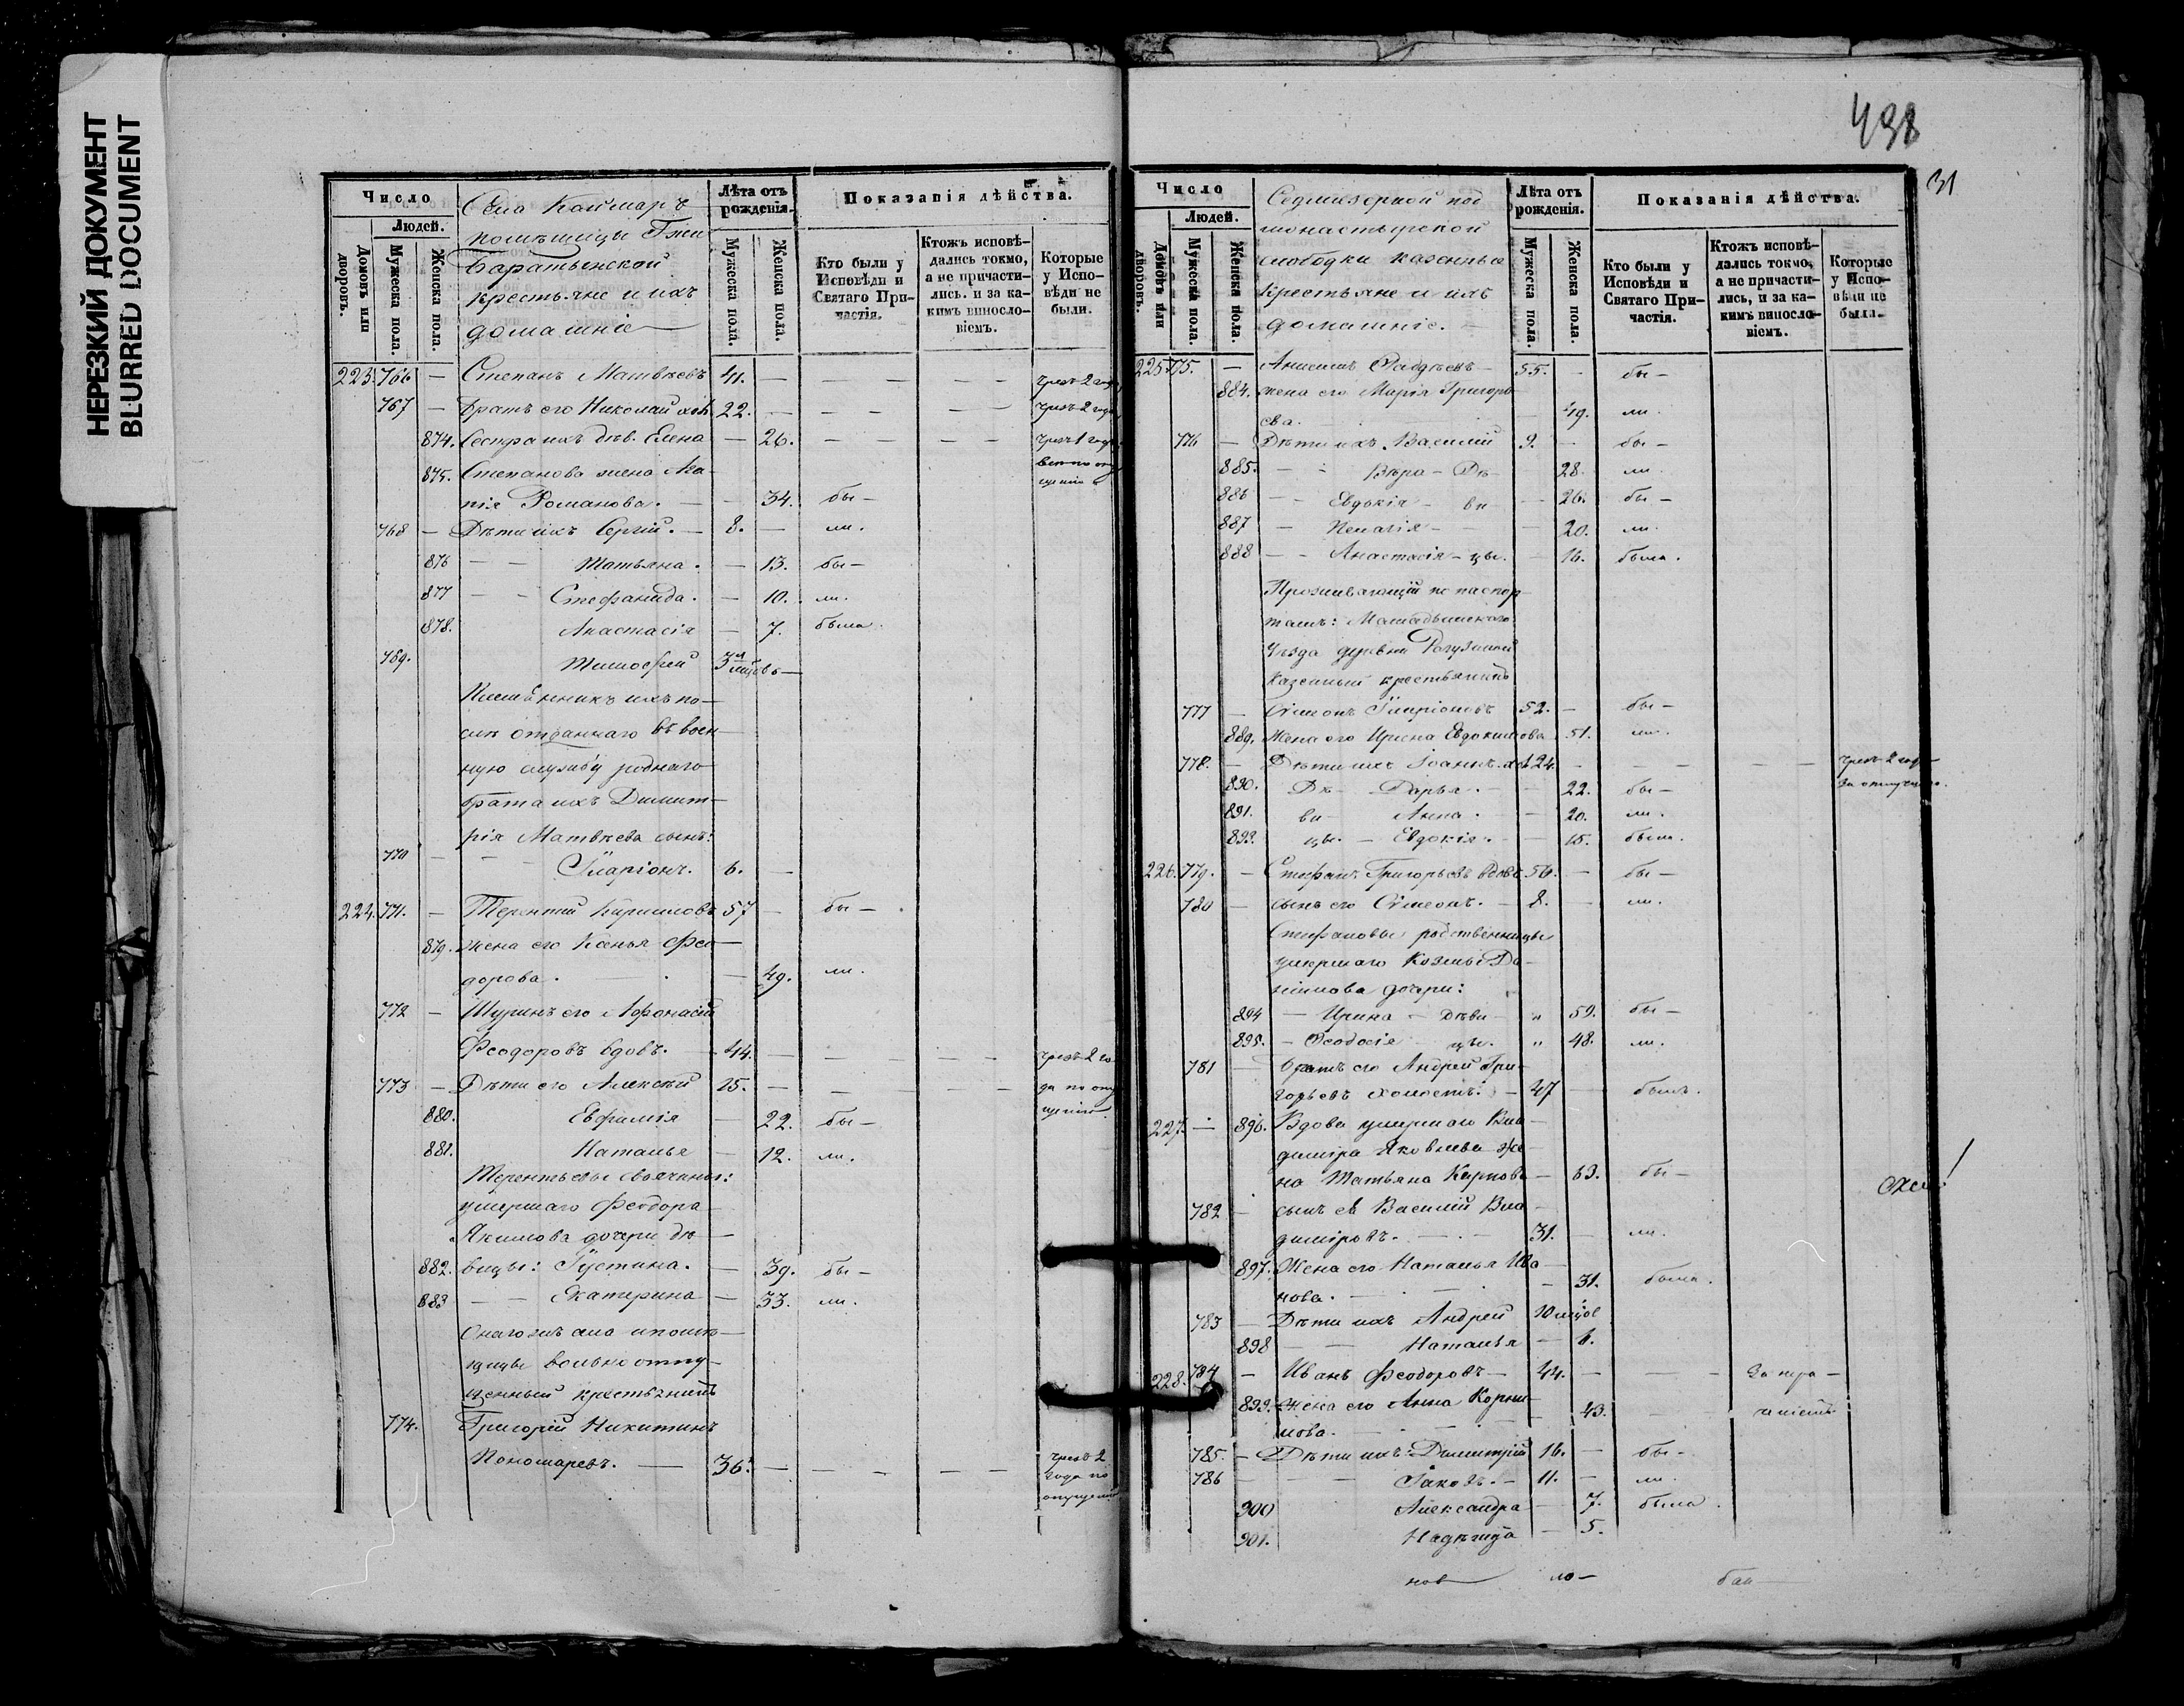 НЕРЕЗКИЙ ДОКУМЕНТ
BLURRED DOCUMENT
Число
Людей.
Домовъ или дворовъ.
Мужеска пола.
Женска пола.
Села Каймаръ
помѣщицы Гжи
Баратынской
крестьяне и ихъ
домашніе
Лѣта отъ рожденія.
Мужеска пола.
Женска пола.
Показанія дѣйства.
Кто были у Исповѣди и Святаго Причастія.
Ктожъ исповѣдались токмо, а не причастились, и за какимъ винословіемъ.
Которые у Исповѣди не были.
223. 766 — Степанъ Матвѣевъ 41. — чрезъ 2 года
767 — братъ его Николай хол. 22. — чрезъ 2 года
874. Сестра ихъ дѣв. Елена — 26. — чрезъ 1 годъ
875. Степанова жена Ага-
пія Романова. — 34. бы —
768 — Дѣти ихъ Сергій. — 8. — ли.
876 — — Татьяна. — 13. бы —
877 — — Стефанида. — 10. ли.
878. Анастасія — 7. была.
769. Тимофей 3 мцовъ —
Племянникъ ихъ по-
слѣ отданнаго въ воен-
ную службу роднаго
брата ихъ Димит-
рія Матвѣева сынъ:
770 — — Иларіонъ. 6. —
224. 771. — Терентій Кириловъ 57 — бы —
879. жена его Ксенья Фео-
дорова. — 49. ли.
772 — Шуринъ его Афонасій
Феодоровъ вдовъ. — 44. — чрезъ 2 го-
773 — Дѣти его Алексѣй 25. — да по опу-
щенію.
880. Евфимія — 22. бы —
881. Наталья — 12. ли.
Терентьевы своячины:
умершаго Феодора
Якимова дочери дѣ-
882. вицы: Іустина. — 39. бы —
883 — — Екатерина — 33. ли.
Онагожъ села и помѣ-
щицы вольноотпу-
щенный крестьянинъ
774. Григорій Никитинъ
Пономаревъ. — 36. — чрезъ 2
года по
опущенію
438
31
Число
Людей.
Домовъ или дворовъ.
Мужеска пола.
Женска пола.
Седміезерной под
монастырской
слободки казенные
крестьяне и ихъ
домашніе. —
Лѣта отъ рожденія.
Мужеска пола.
Женска пола.
Показанія дѣйства.
Кто были у Исповѣди и Святаго Причастія.
Ктожъ исповѣдались токмо, а не причастились, и за какимъ винословіемъ.
Которые у Исповѣди не были.
225 775. — Анисимъ Фаддѣевъ — 55. — бы —
884. жена его Марія Григорь
ева. — 49. ли.
776 — Дѣти ихъ Василій 9. — бы —
885. — Вѣра — Дѣ — 28. ли.
886 — — Евдокія — ви — 26. бы —
887 — Пелагія — 20. ли.
888 — — Анастасія — цы. — 16. была.
Проживающій по паспор
тамъ: Мамадышскаго
Уѣзда деревни
казенный крестьянинъ
777 — Сѵмеонъ Иларіоновъ 52. — бы —
889. Жена его Ирина Евдокимова 51. ли.
778. — Дѣти ихъ Іоаннъ. хол. 24. — чрезъ 2 года
890. Дѣ — Дарья. — 22. бы —
891. ви — Анна. — 20. ли.
893. цы. — Евдокія. — 15. была.
226. 779. — Стефанъ Григорьевъ вдовъ 56. — бы —
780 — сынъ его Сѵмеонъ. — 8. — ли.
Стефановы родственницы
умершаго Козмы Да-
ніилова дочери:
894 — Ирина — дѣви — „ 59. бы —
895. — Феодосія — цы. „ 48. ли.
781 — братъ его Андрей Гри-
горьевъ холостъ. — 47 — былъ.
227. — 896. Вдова умершаго Вла-
диміра Яковлева же-
на Татьяна Карпова — 63. бы —
782 — сынъ ея Василій Вла-
диміровъ. — 31. — ли.
897. Жена его Наталья Ива
нова. — 31. была.
783 — Дѣти ихъ Андрей 10 мцов
898 — — Наталья — 6.
228. 784 — Иванъ Феодоровъ — 44. — За нера-
899. жена его Анна Корни-
лова. — 43. — чніемъ
785. — Дѣти ихъ: Димитрій 16. — бы —
786 — — Іаковъ. — 11. — ли.
900 Александра — 7. была.
901. Надежда — 5.
нов — ло — бан